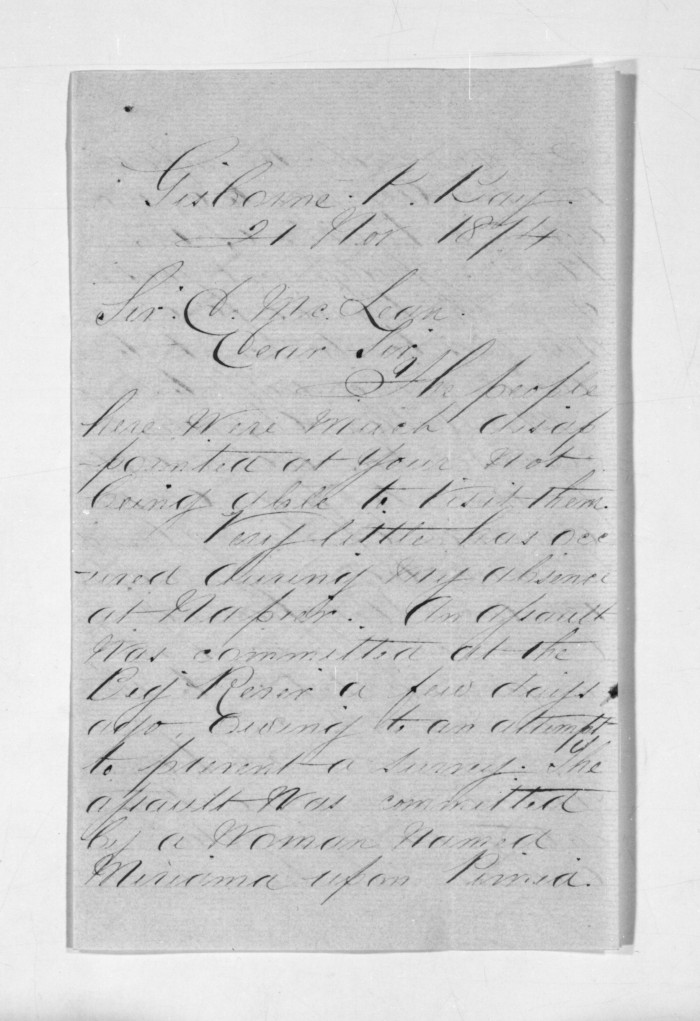 Gisborne. P. Bay.
21 Nov 1874
Sir. D. Mc. Lean.
Dear Sir,
The people
here were much disap
-pointed at your not
being able to visit them.
Very little has occ
-ured during my absence
at Napier. An assault
was committed at the
Big River a few days
ago, owing to an attempt
to prevent a survey. The
assault was committed
by a Woman named
Miriama upon